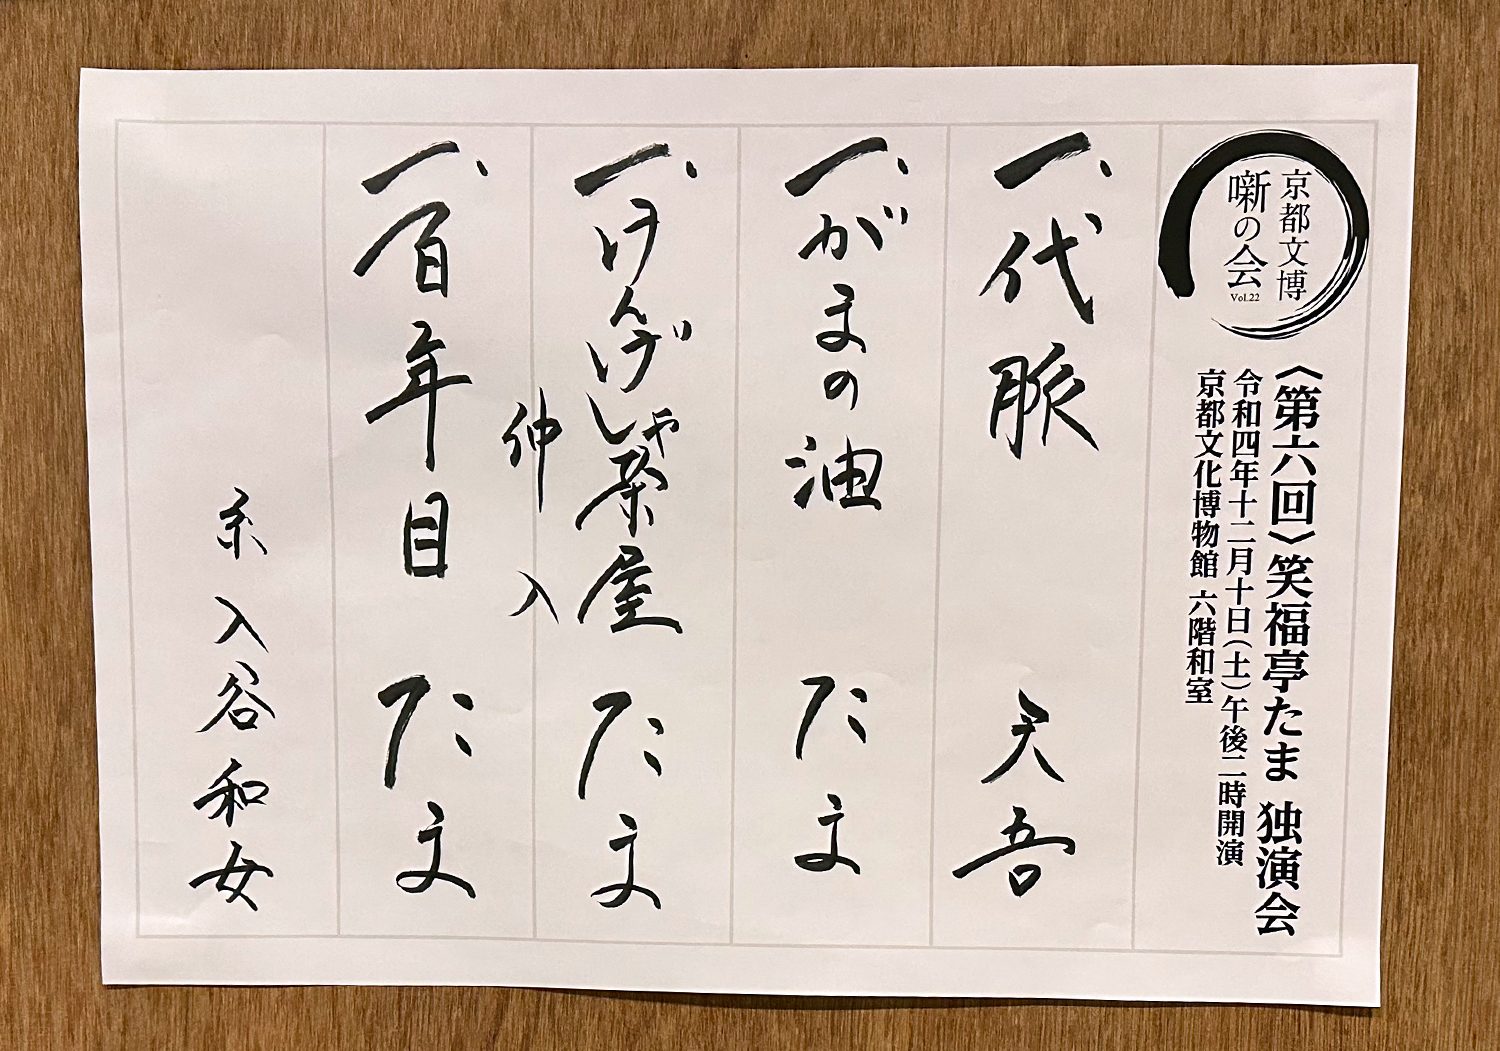 京都文博
噺の会
Vol.22
〈第六回〉笑福亭たま 独演会
令和四年十二月十日(土)午後二時開演
京都文化博物館 六階和室
一、代脈 天吾
一、がまの油 たま
一、けんげしゃ茶屋 たま
仲入
一、百年目 たま
糸 入谷和女